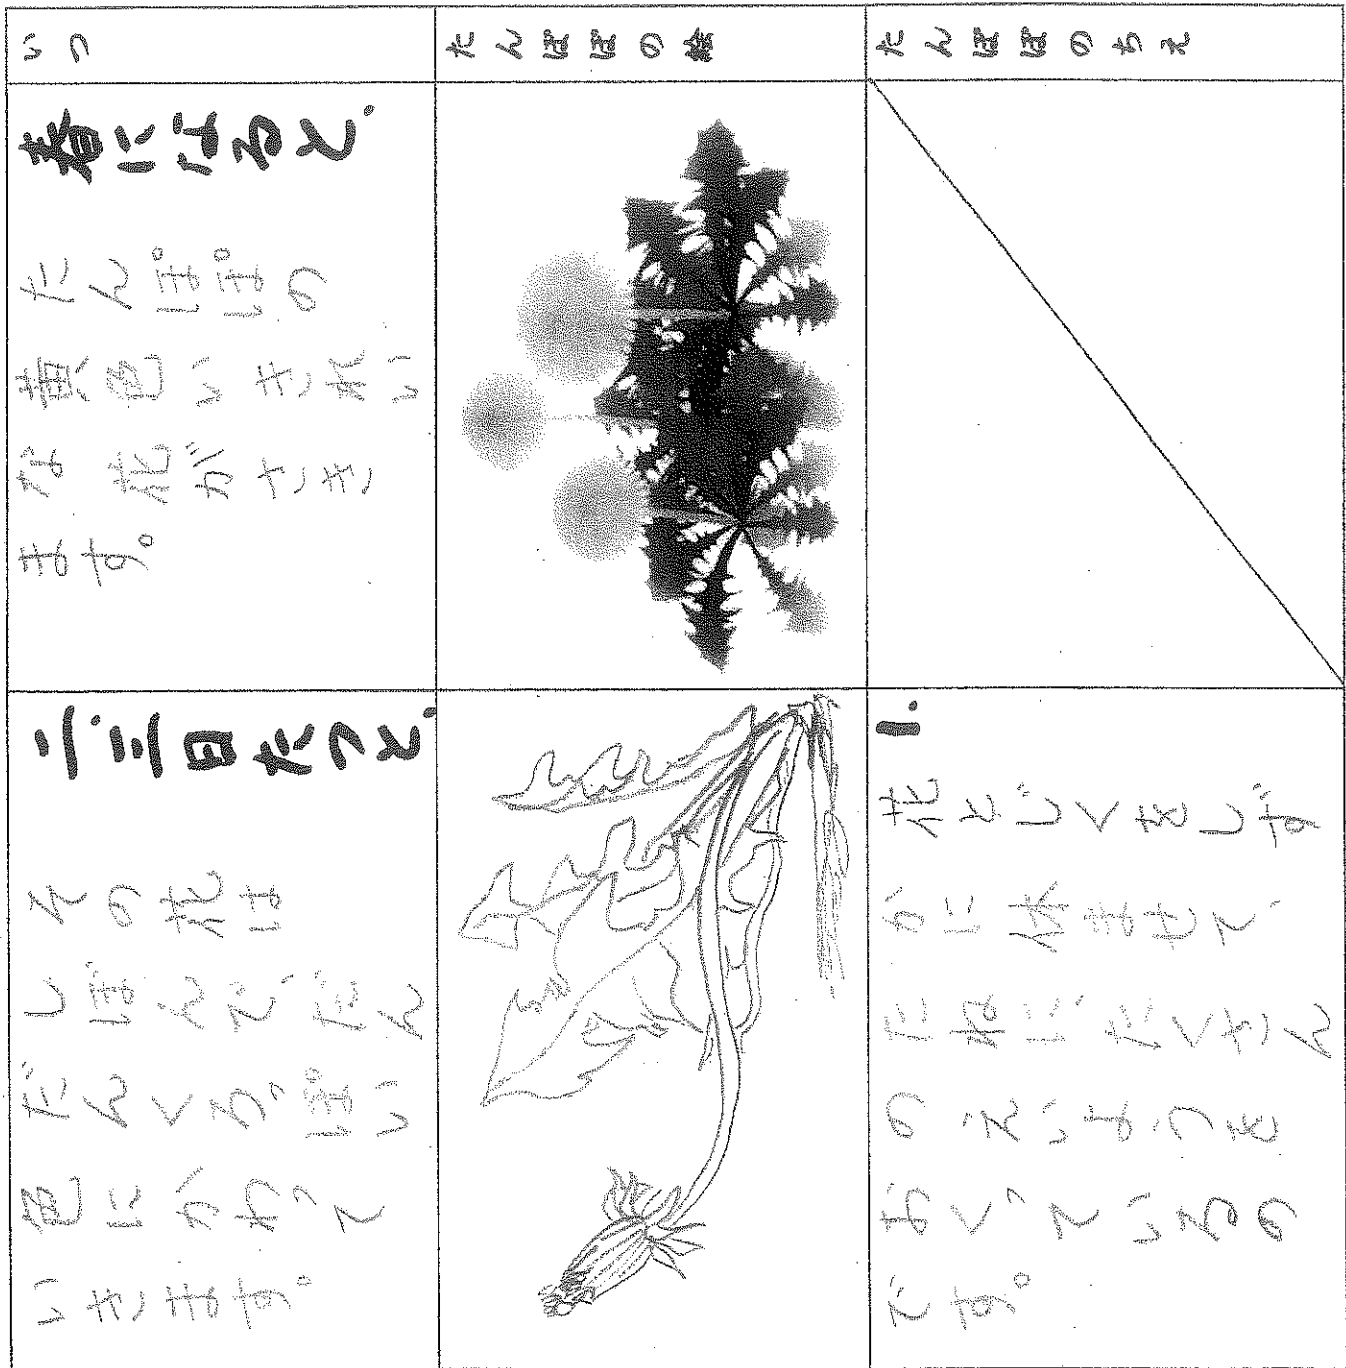 いつ
たんぽぽの絵
たんぽぽのちえ
春になると、
たんぽぽの
黄色いきれい
な花がさき
ます。
二、三日たつと、
その花は
しぼんで、だん
だんくろっぽい
色にかわって
いきます。
1.
花とじくをしず
かに休ませて、
たねに、たくさん
のえいようを
おくっているの
です。